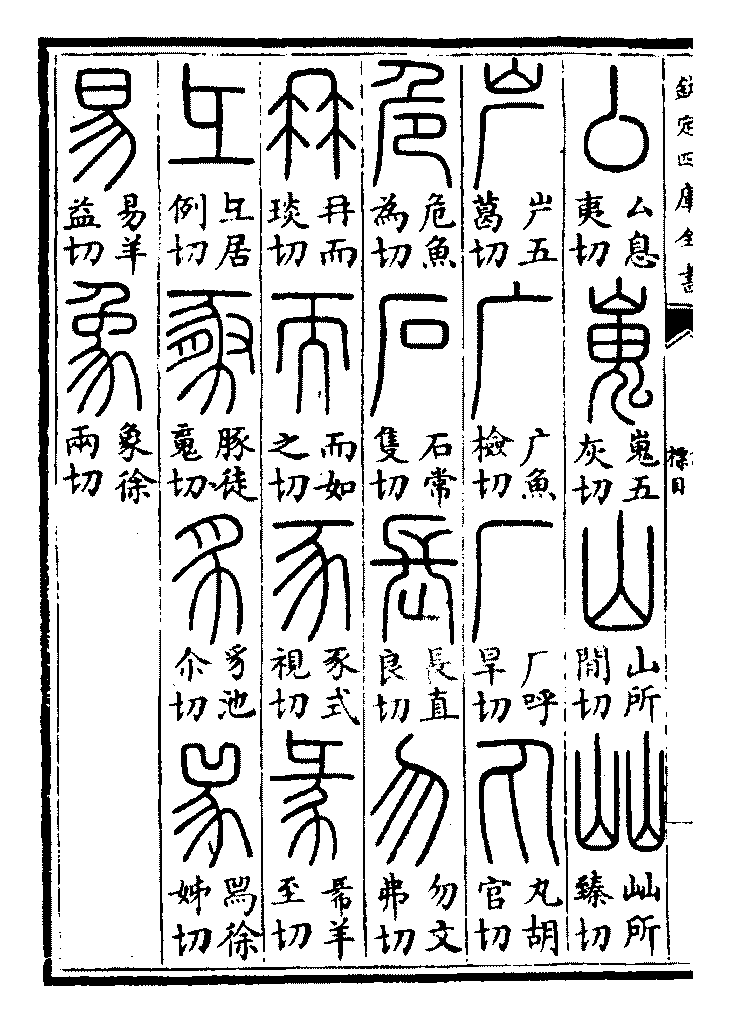 欽定四庫全書
標目
厶 厶息夷切 嵬 嵬五灰切 山 山所閒切 屾 屾所臻切
屵 屵五葛切 广 广魚檢切 厂 厂呼旱切 丸 丸胡官切
危 危魚為切 石 石常隻切 長 長直良切 勿 勿文弗切
冄 冄而琰切 而 而如之切 豕 豕式視切 㣇 㣇羊至切
彑 彑居例切 豚 豚徒䰟切 豸 豸池尒切 𤉡 𤉡徐姊切
易 易羊益切 象 象徐兩切